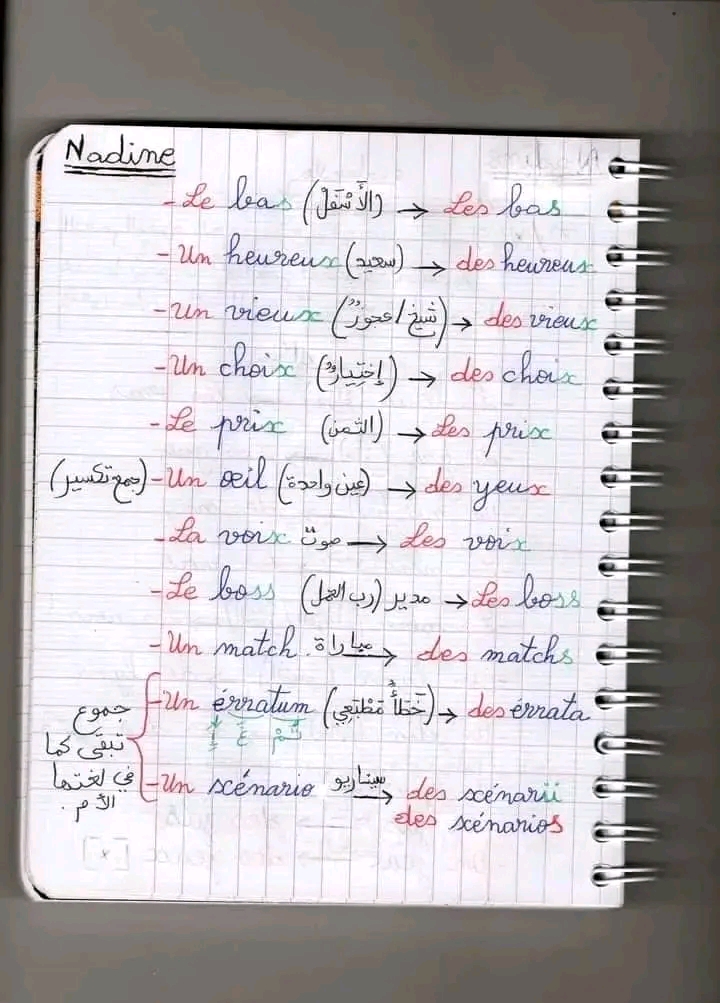 Nadine
- Le bas (الأَسْفَلْ) → Les bas
- Un heureux (سعيد) → des heureux
- Un vieux (شيخ / عجوزٌ) → des vieux
- Un choix (إختِيارٌ) → des choix
- Le prix (الثمن) → Les prix
(جمع تكسير) - Un œil (عين واحدة) → des yeux
- La voix صوتٌ → Les voix
- Le boss مدير (رب العمل) → Les boss
- Un match . مباراة → des matchs
- Un érratum (خَطأٌ مَطْبَعِي) → des érrata
إ غَ تُمْ
- Un scénario سيناريو → des scénarii
des scénarios
جموع
تبقى كما
في لغتها
الأم .